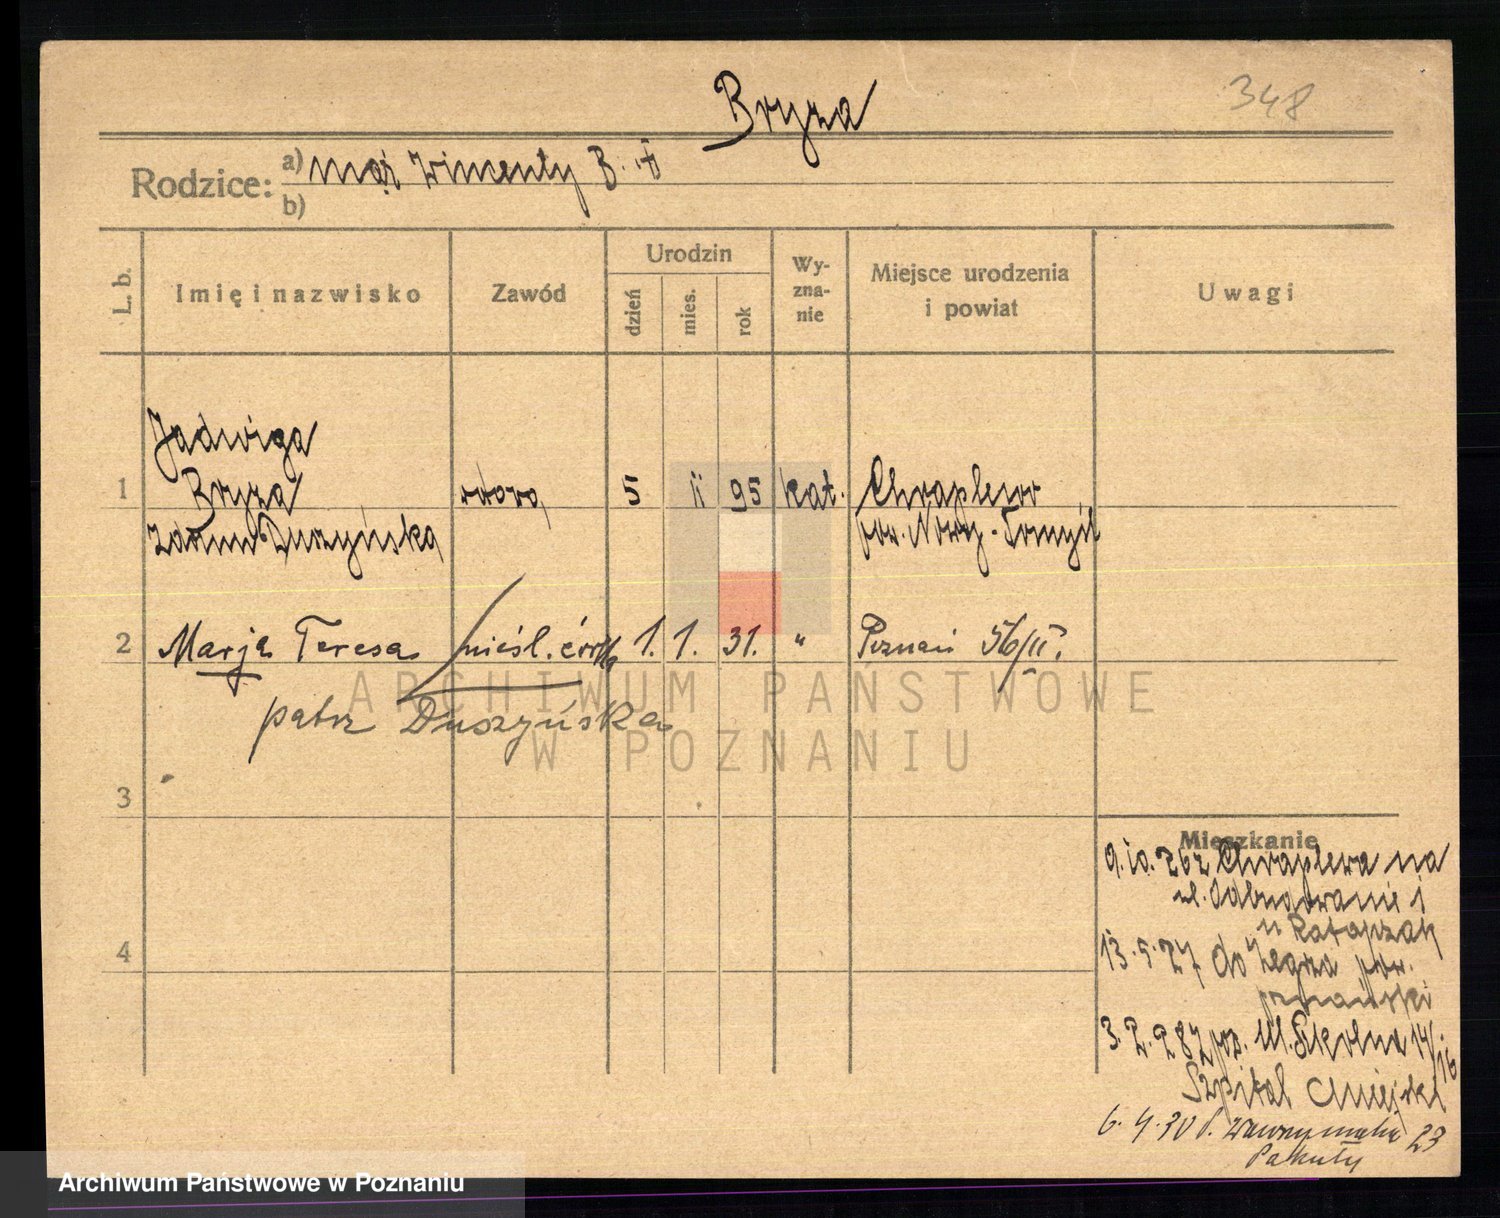 348
Bryza
Rodzice: a) mąż Wincenty B. †
b)
L. b.
Imię i nazwisko
Zawód
Urodzin
dzień
mies.
rok
Wy-
zna-
nie
Miejsce urodzenia
i powiat
Uwagi
Jadwiga
1 Bryza wdowa 5 11 95 kat. Chraplewo
Duszyńska pow. Nowy-Tomyśl
2 Marja Teresa nieśl. córka 1. 1. 31. " Poznań 56/II.
patrz Duszyńska
3
4
Mieszkanie
9.10.26 z Chraplewa na
ul.
u Ratajczak
13.5.27 do Zegrza pow.
poznański
3.2.28 z pow. Ul. Szkolna 14/16
Szpital Miejski
6.4.30 23
Pakuły
ARCHIWUM PAŃSTWOWE
W POZNANIU
Archiwum Państwowe w Poznaniu